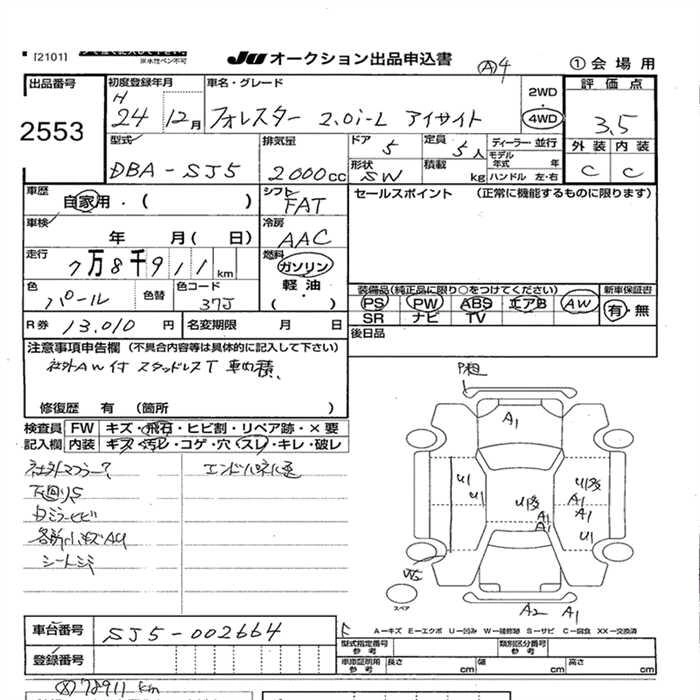 [2101]
※水性ペン不可
JU オークション出品申込書
A 4
① 会場用
出品番号
2553
初度登録年月
H 24 12月
車名・グレード
フォレスター 2.0i-L アイサイト
2WD
4WD
評価点
3.5
外装 内装
C C
型式
DBA-SJ5
排気量
2000cc
ドア
5
定員
5人
ディーラー 並行
モデル年式 年
形状
SW
積載
kg
ハンドル 左・右
車歴
自家用・( )
シフト
FAT
セールスポイント (正常に機能するものに限ります)
車検
年 月( 日)
冷房
AAC
走行
7万8千911km
燃料
ガソリン
軽油・
( )
色
パール
色替
色コード
37J
装備品(純正品に限り○をつけてください)
新車保証書
PS PW ABS エアB AW
SR ナビ TV
有・無
R券 13,010円
名変期限 月 日
後日品
注意事項申告欄 (不具合内容等は具体的に記入して下さい)
社外AW付 スタッドレスT 車内積
修復歴 有 (箇所 )
検査員 FW キズ・飛石・ヒビ割・リペア跡・×要
記入欄 内装 キズ・汚レ・コゲ・穴・スレ・キレ・破レ
社外マフラー?
下回りS
各所小キズAU
シートシミ
A1
U1
U1
A1
A1
A1
A1
U1
A2 A1
スペア
A-キズ E-エクボ U-凹み W-補修跡 S-サビ C-腐食 XX-交換済
車台番号
SJ5-002664
登録番号
型式指定番号
参考
類別区分番号
車庫証明用
参考
長さ cm 幅 cm 高さ cm
78911 km